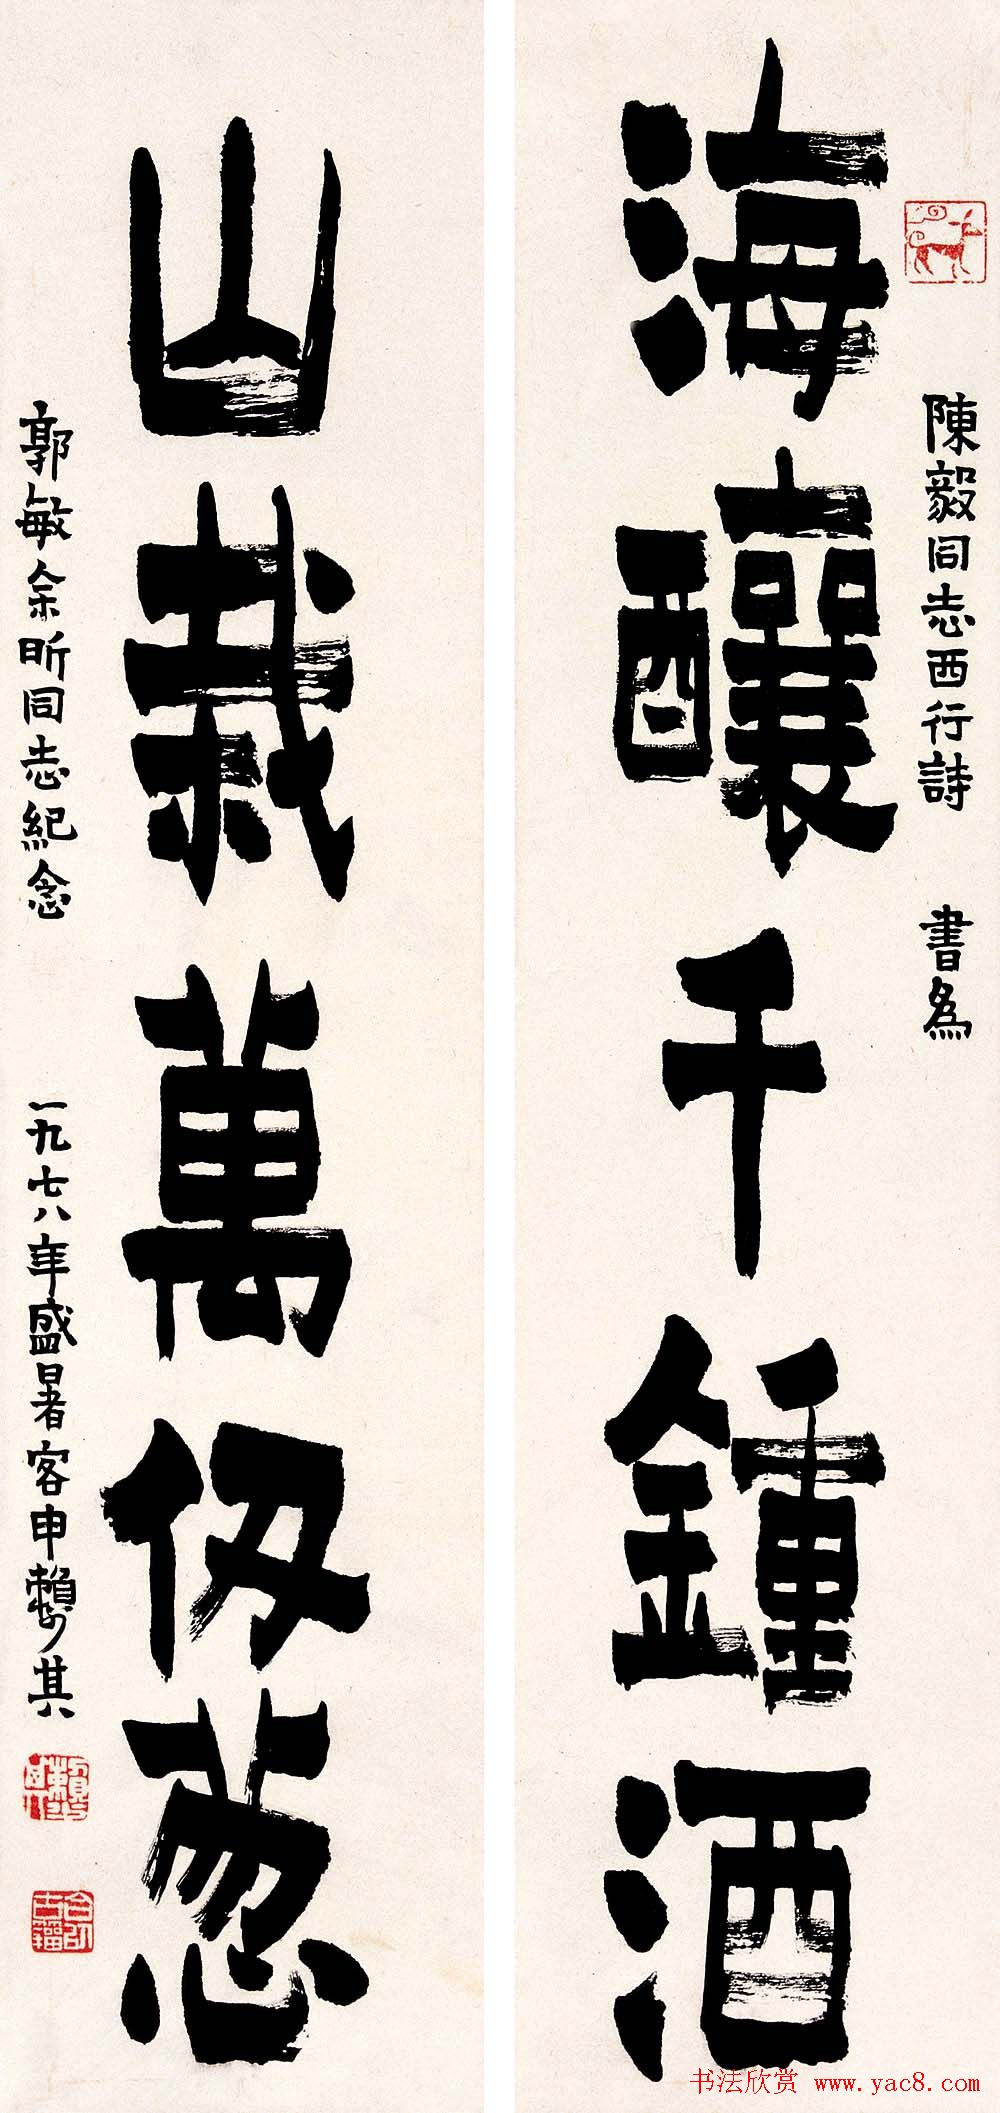 陳毅同志西行詩 書為
海釀千鍾酒
山栽萬仞葱
郭敏余昕同志紀念
一九七八年盛暑客申賴少其
书法欣赏 www.yac8.com